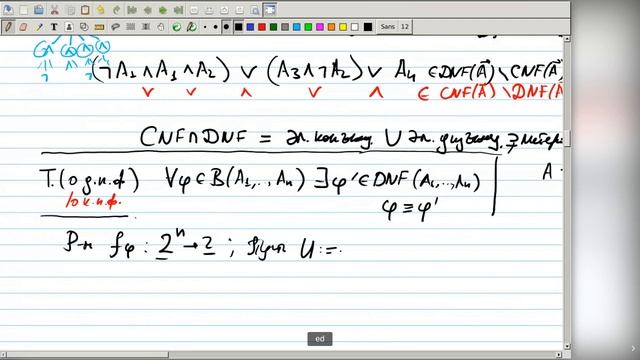 Sans 12
(¬A₁∧A₁∧A₂) ∨ (A₃∧¬A₂) ∨ A₄ ∈DNF(A⃗)\CNF(A⃗)
∨ ∨ ∧ ∨ ∧ ∈ CNF(A⃗)\DNF(A⃗)
CNF∩DNF = эл. конъюнкц. ∪ эл. дизъюнкц.
Т.(о д.н.ф) ∀φ∈B(A₁,..,Aₙ) ∃φ'∈DNF(A₁,..,Aₙ) A
/о к.н.ф.
φ≡φ'
Р-м f_φ : 2ⁿ→2 ; Пусть U :=
ed